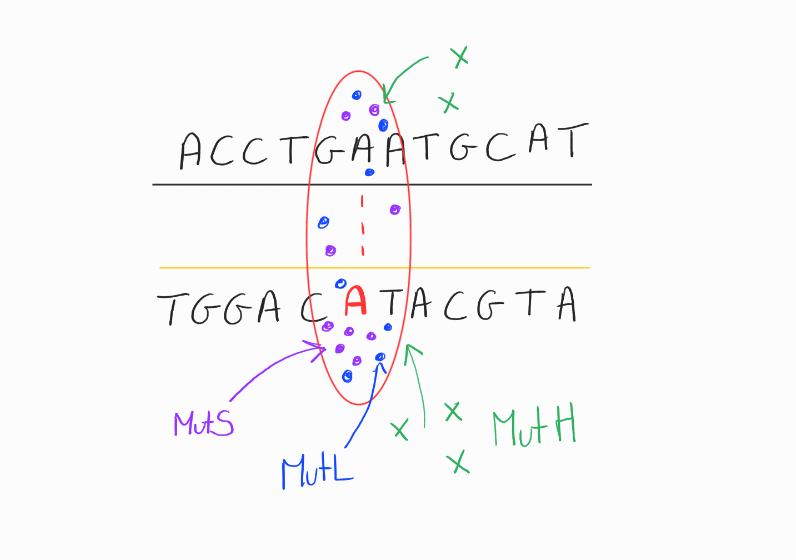 ACCTGAATGCAT
TGGACATACGTA
MutS
MutL
MutH